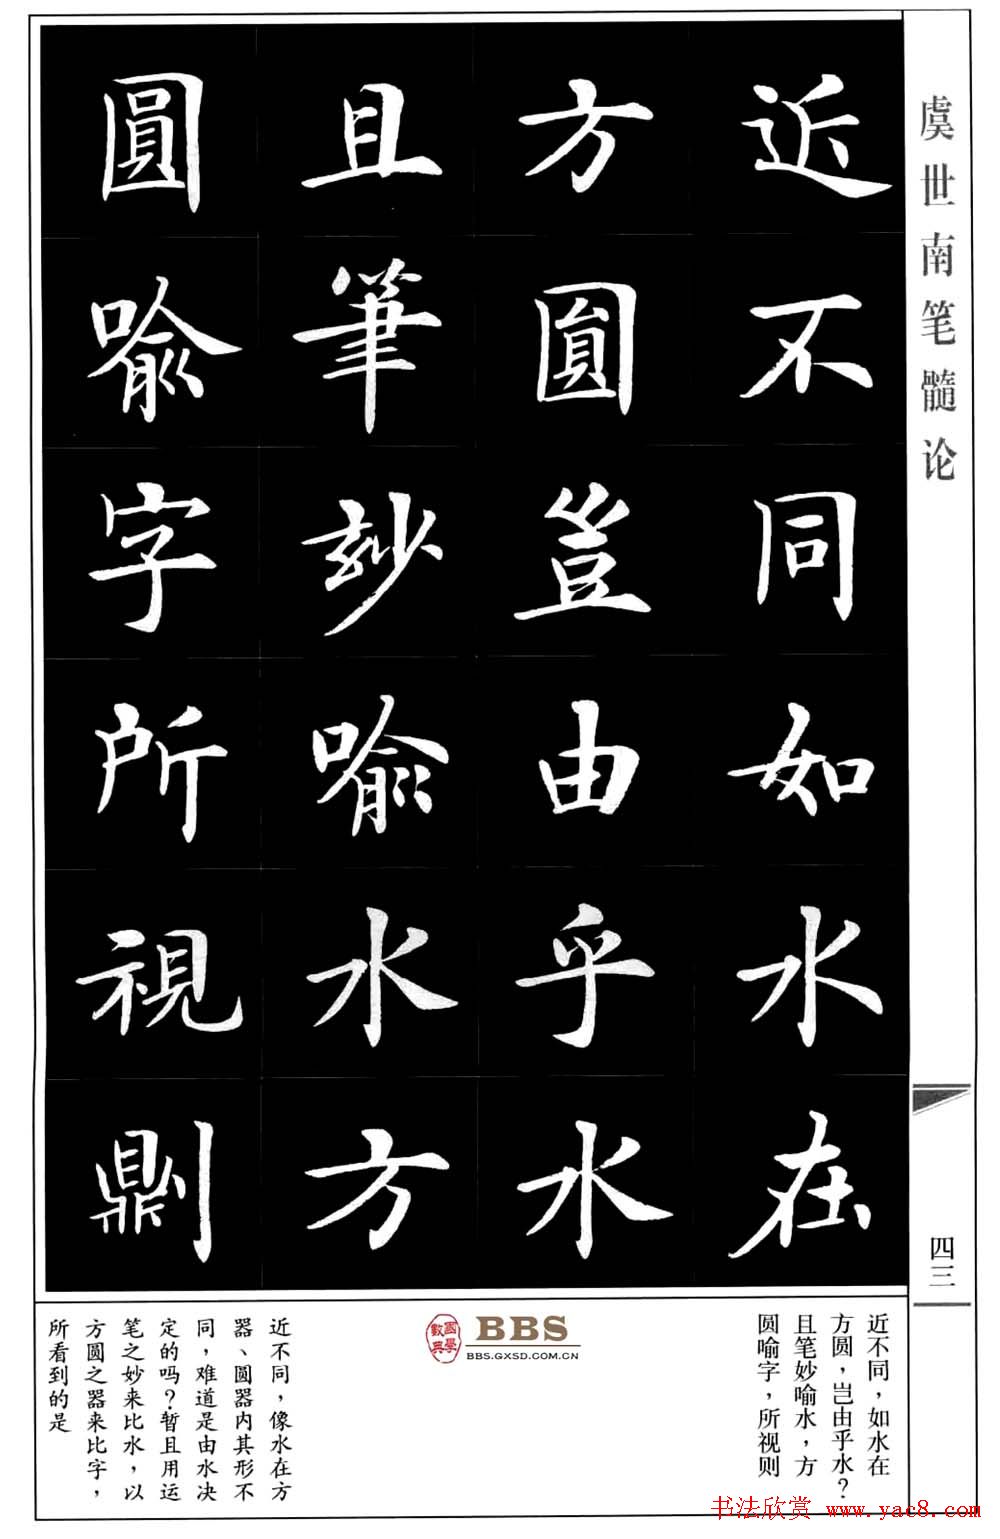 虞世南笔髓论
近不同如水在
方圓豈由乎水
且筆妙喻水方
圓喻字所視劓
四三
近不同，如水在
方圆，岂由乎水？
且笔妙喻水，方
圆喻字，所视则
國學數典
BBS
BBS.GXSD.COM.CN
近不同，像水在方
器、圆器内其形不
同，难道是由水决
定的吗？暂且用运
笔之妙来比水，以
方圆之器来比字，
所看到的是
书法欣赏 www.yac8.com